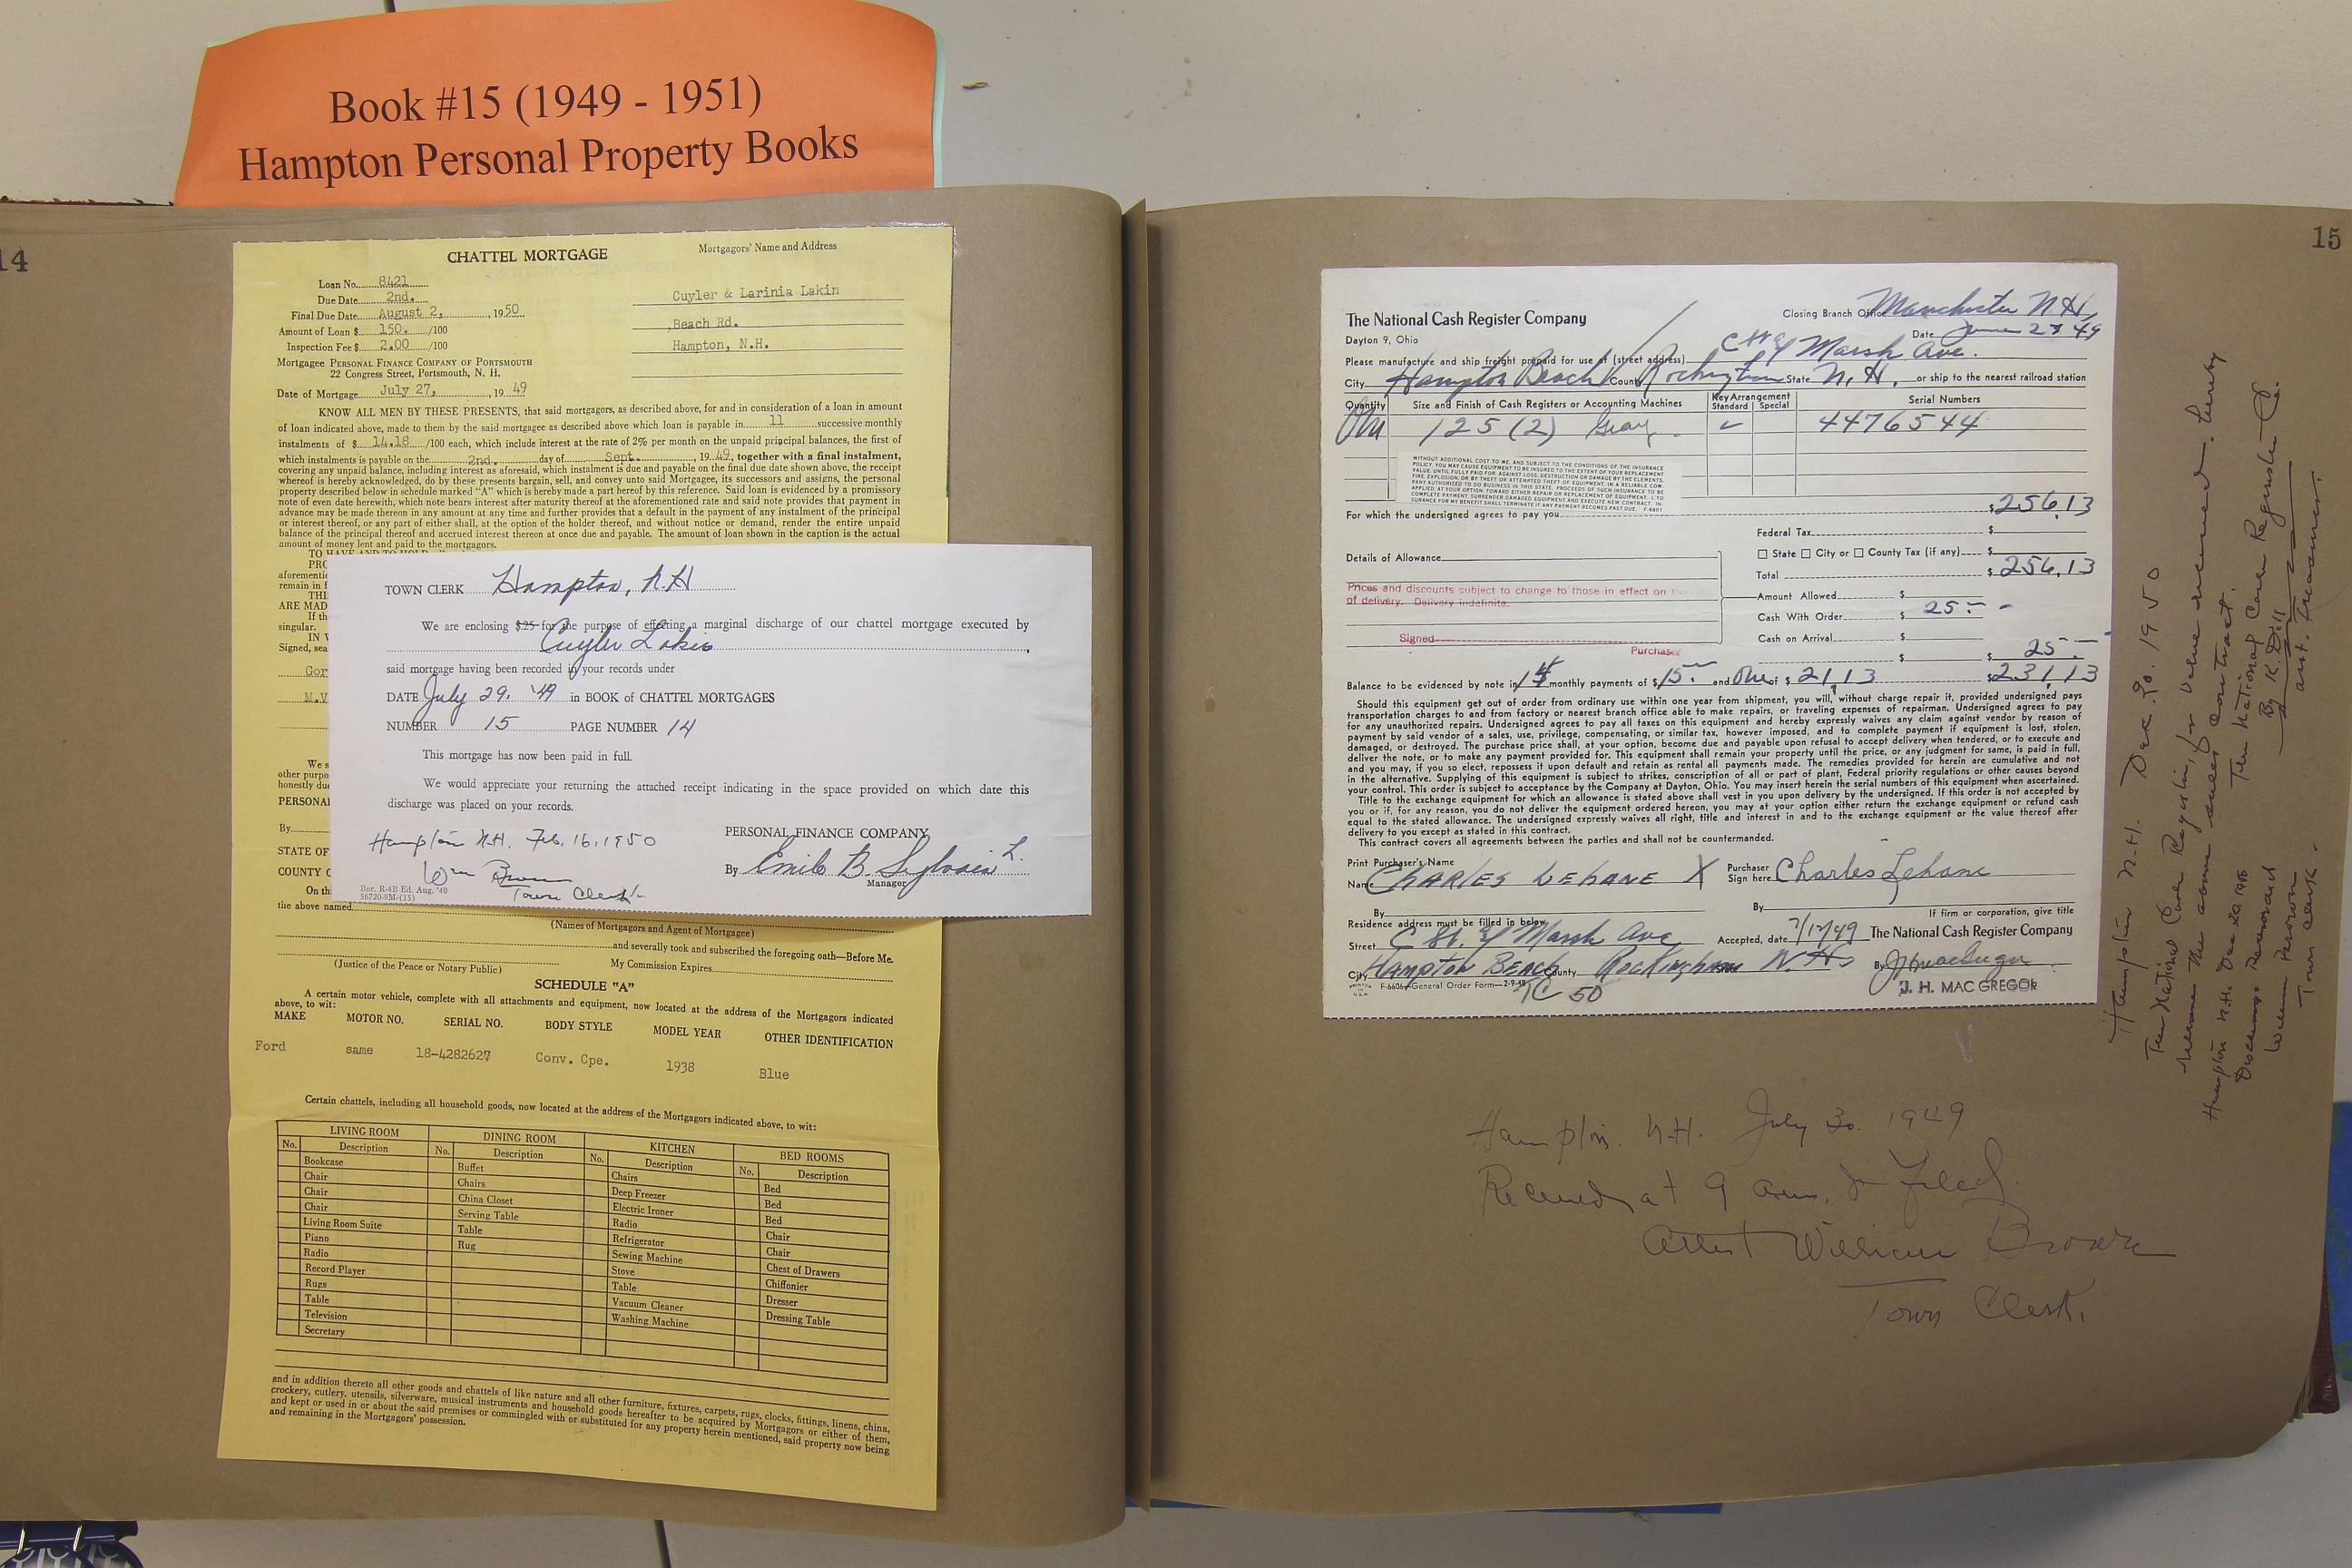 Book #15 (1949 - 1951)
Hampton Personal Property Books
14
CHATTEL MORTGAGE
Mortgagors' Name and Address
Loan No. 8421
Due Date 2nd.
Final Due Date August 2, , 1950
Amount of Loan $ 150. /100
Inspection Fee $ 2.00 /100
Cuyler & Larinia Lakin
Beach Rd.
Hampton, N.H.
Mortgagee PERSONAL FINANCE COMPANY OF PORTSMOUTH
22 Congress Street, Portsmouth, N. H.
Date of Mortgage July 27, , 19 49
KNOW ALL MEN BY THESE PRESENTS, that said mortgagors, as described above, for and in consideration of a loan in amount
of loan indicated above, made to them by the said mortgagee as described above which loan is payable in 11 successive monthly
instalments of $ 14.18 /100 each, which include interest at the rate of 2% per month on the unpaid principal balances, the first of
which instalments is payable on the 2nd. day of Sept. , 19 49, together with a final instalment,
covering any unpaid balance, including interest as aforesaid, which instalment is due and payable on the final due date shown above, the receipt
whereof is hereby acknowledged, do by these presents bargain, sell, and convey unto said Mortgagee, its successors and assigns, the personal
property described below in schedule marked "A" which is hereby made a part hereof by this reference. Said loan is evidenced by a promissory
note of even date herewith, which note bears interest after maturity thereof at the aforementioned rate and said note provides that payment in
advance may be made thereon in any amount at any time and further provides that a default in the payment of any instalment of the principal
or interest thereof, or any part of either shall, at the option of the holder thereof, and without notice or demand, render the entire unpaid
balance of the principal thereof and accrued interest thereon at once due and payable. The amount of loan shown in the caption is the actual
amount of money lent and paid to the mortgagors.
TO HAVE AND TO HOLD
PRO
aforementio
remain in f
THI
ARE MAD
If th
singular.
IN W
Signed, sea
Gor
M.V
We s
other purpo
honestly due
PERSONAL
By
STATE OF
COUNTY O
On thi
the above named
TOWN CLERK Hampton, N.H
We are enclosing $.25 for the purpose of effecting a marginal discharge of our chattel mortgage executed by
Cuyler Lakin ,
said mortgage having been recorded in your records under
DATE July 29, '49 in BOOK of CHATTEL MORTGAGES
NUMBER 15 PAGE NUMBER 14
This mortgage has now been paid in full.
We would appreciate your returning the attached receipt indicating in the space provided on which date this
discharge was placed on your records.
PERSONAL FINANCE COMPANY
Hampton N.H. Feb. 16, 1950
By Emile B. Sylvain L.
Manager
Wm Brown
Town Clerk
Bor. R-4B Ed. Aug. '40
56720-9M-(15)
(Names of Mortgagors and Agent of Mortgagee)
and severally took and subscribed the foregoing oath—Before Me.
(Justice of the Peace or Notary Public)
My Commission Expires
SCHEDULE "A"
A certain motor vehicle, complete with all attachments and equipment, now located at the address of the Mortgagors indicated
above, to wit:
MAKE MOTOR NO. SERIAL NO. BODY STYLE MODEL YEAR OTHER IDENTIFICATION
Ford same 18-4282627 Conv. Cpe. 1938 Blue
Certain chattels, including all household goods, now located at the address of the Mortgagors indicated above, to wit:
LIVING ROOM DINING ROOM KITCHEN BED ROOMS
No. Description No. Description No. Description No. Description
Bookcase Buffet Chairs Bed
Chair Chairs Deep Freezer Bed
Chair China Closet Electric Ironer Bed
Chair Serving Table Radio Chair
Living Room Suite Table Refrigerator Chair
Piano Rug Sewing Machine Chest of Drawers
Radio Stove Chiffonier
Record Player Table Dresser
Rugs Vacuum Cleaner Dressing Table
Table Washing Machine
Television
Secretary
and in addition thereto all other goods and chattels of like nature and all other furniture, fixtures, carpets, rugs, clocks, fittings, linens, china,
crockery, cutlery, utensils, silverware, musical instruments and household goods hereafter to be acquired by Mortgagors or either of them,
and kept or used in or about the said premises or commingled with or substituted for any property herein mentioned, said property now being
and remaining in the Mortgagors' possession.
15
The National Cash Register Company
Dayton 9, Ohio
Closing Branch Office Manchester N.H,
Date June 23 49
Please manufacture and ship freight prepaid for use at (street address) Marsh Ave.
City Hampton Beach County Rockingham State N. H. or ship to the nearest railroad station
Quantity Size and Finish of Cash Registers or Accounting Machines Key Arrangement Standard Special Serial Numbers
One 125 (2) Gray ✓ 4476544
WITHOUT ADDITIONAL COST TO ME, AND SUBJECT TO THE CONDITIONS OF THE INSURANCE
POLICY, YOU MAY CAUSE EQUIPMENT TO BE INSURED TO THE EXTENT OF YOUR REPLACEMENT
VALUE, UNTIL FULLY PAID FOR, AGAINST LOSS, DESTRUCTION OR DAMAGE BY THE ELEMENTS,
FIRE, EXPLOSION, OR BY THEFT OR ATTEMPTED THEFT OF EQUIPMENT, IN A RELIABLE COM-
PANY AUTHORIZED TO DO BUSINESS IN THIS STATE. PROCEEDS OF SUCH INSURANCE TO BE
APPLIED, AT YOUR OPTION, TOWARD EITHER REPAIR OR REPLACEMENT OF EQUIPMENT. I, TO
COMPLETE PAYMENT, SURRENDER DAMAGED EQUIPMENT AND EXECUTE NEW CONTRACT. IN-
SURANCE FOR MY BENEFIT SHALL TERMINATE IF ANY PAYMENT BECOMES PAST DUE. F-6601
For which the undersigned agrees to pay you $256.13
Federal Tax $
Details of Allowance
State City or County Tax (if any) $
Total $ 256.13
Prices and discounts subject to change to those in effect on
of delivery. Delivery indefinite.
Amount Allowed $
Cash With Order $ 25.-
Signed
Purchaser
Cash on Arrival $
$ $ 25.-
Balance to be evidenced by note in 14 monthly payments of $ 15.- and One of $ 21.13 $231.13
Should this equipment get out of order from ordinary use within one year from shipment, you will, without charge repair it, provided undersigned pays
transportation charges to and from factory or nearest branch office able to make repairs, or traveling expenses of repairman. Undersigned agrees to pay
for any unauthorized repairs. Undersigned agrees to pay all taxes on this equipment and hereby expressly waives any claim against vendor by reason of
payment by said vendor of a sales, use, privilege, compensating, or similar tax, however imposed, and to complete payment if equipment is lost, stolen,
damaged, or destroyed. The purchase price shall, at your option, become due and payable upon refusal to accept delivery when tendered, or to execute and
deliver the note, or to make any payment provided for. This equipment shall remain your property until the price, or any judgment for same, is paid in full,
and you may, if you so elect, repossess it upon default and retain as rental all payments made. The remedies provided for herein are cumulative and not
in the alternative. Supplying of this equipment is subject to strikes, conscription of all or part of plant, Federal priority regulations or other causes beyond
your control. This order is subject to acceptance by the Company at Dayton, Ohio. You may insert herein the serial numbers of this equipment when ascertained.
Title to the exchange equipment for which an allowance is stated above shall vest in you upon delivery by the undersigned. If this order is not accepted by
you or if, for any reason, you do not deliver the equipment ordered hereon, you may at your option either return the exchange equipment or refund cash
equal to the stated allowance. The undersigned expressly waives all right, title and interest in and to the exchange equipment or the value thereof after
delivery to you except as stated in this contract.
This contract covers all agreements between the parties and shall not be countermanded.
Print Purchaser's Name
Name CHARLES LEHANE X
Purchaser Sign here Charles Lehane
By By
Residence address must be filled in below
If firm or corporation, give title
Street C St. & Marsh Ave
Accepted, date 7/17/49 The National Cash Register Company
City HAMPTON BEACH County Rockingham N.H.
By J H MacGregor
F-6606-General Order Form—2-9-48
TC 50
J. H. MAC GREGOR
Hampton N.H. July 30. 1949
Received at 9 a.m. & Filed.
Attest William Brown
Town Clerk.
Hampton N.H. Dec. 20. 1950
The National Cash Register, for value received, hereby
release the above sales contract.
The National Cash Register Co.
By K. Dill
asst. Treasurer.
Hampton N.H. Dec 20, 1950
Discharge Received
William Brown
Town Clerk.